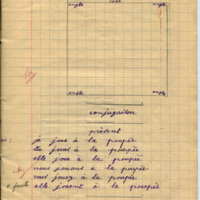 angle angle
angle angle
conjugaison
présent
je joue à la poupée
tu joues à la poupée
elle joue à la poupée
nous jouons à la poupée
vous jouez à la poupée
elles jouent à la poupée